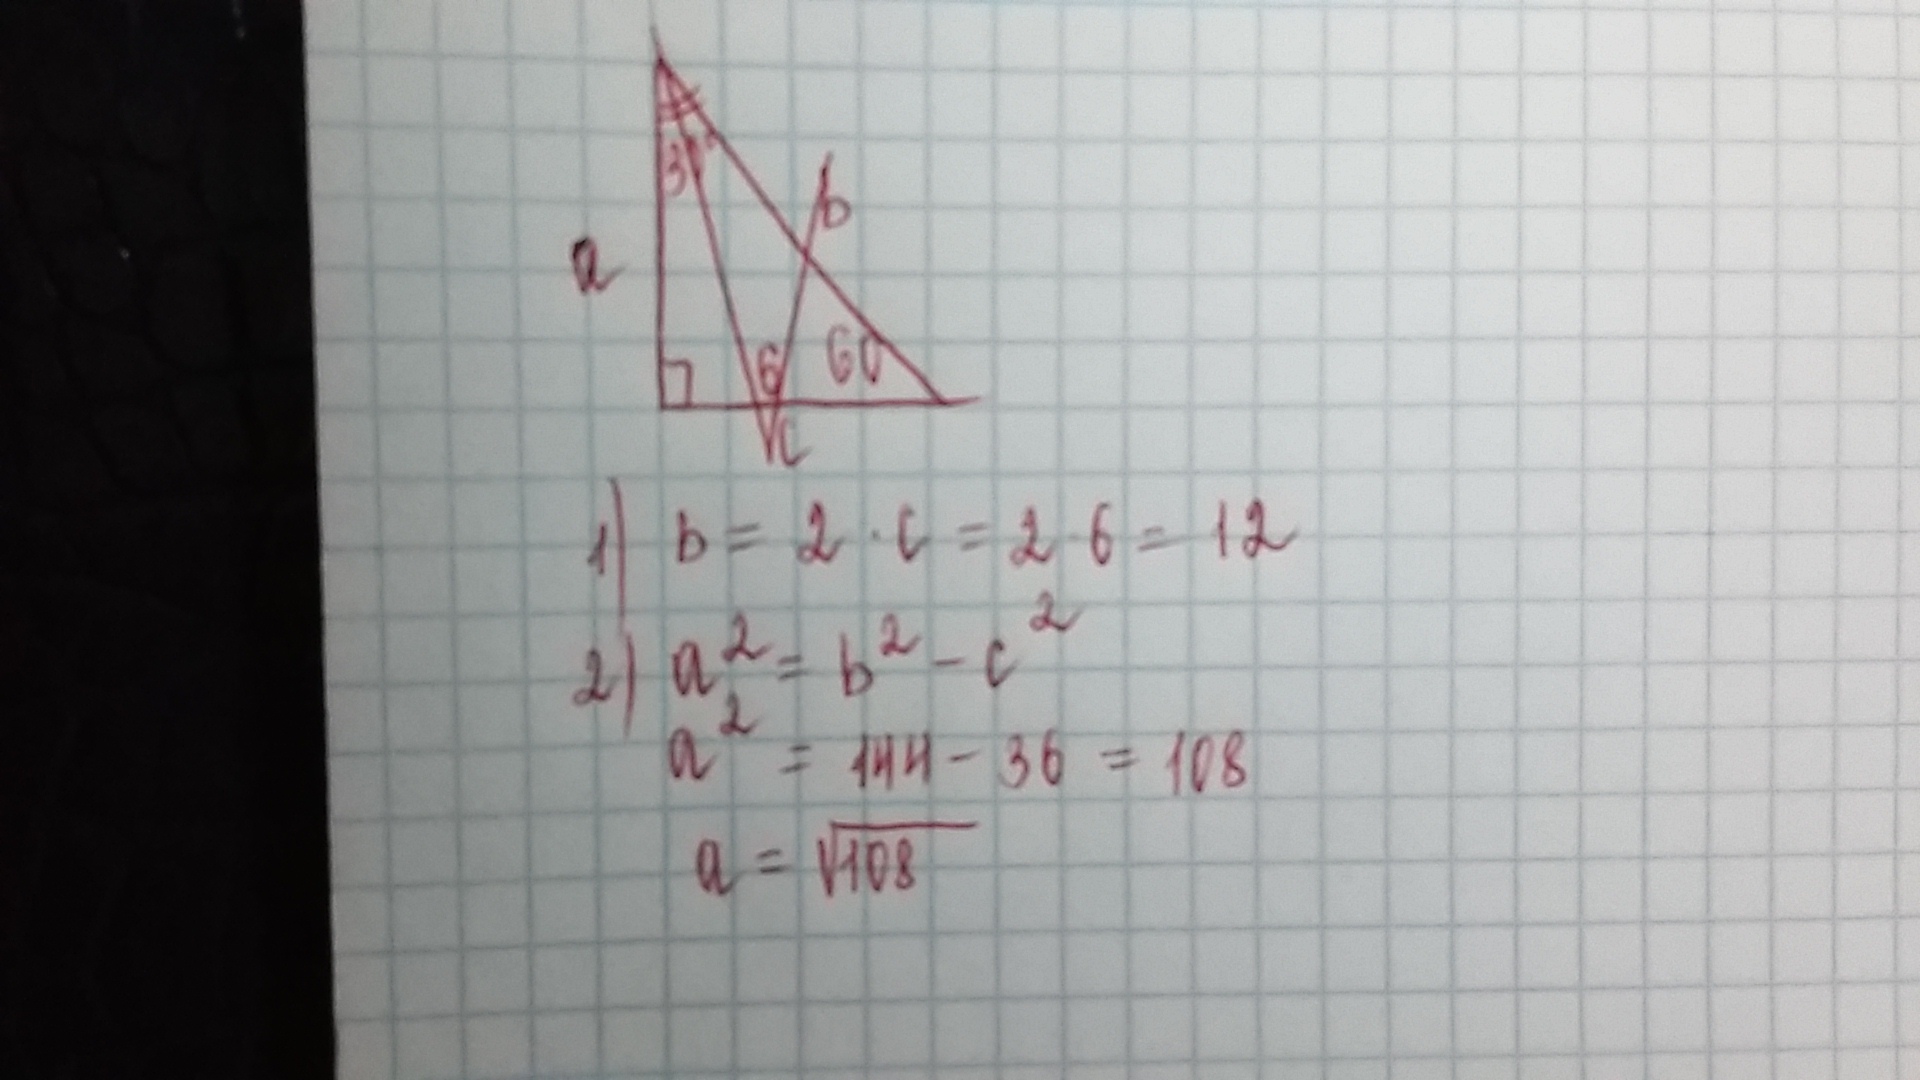 3
b
a
6
60
c
1) b = 2 · c = 2 · 6 = 12
2) a² = b² - c²
a² = 144 - 36 = 108
a = √108